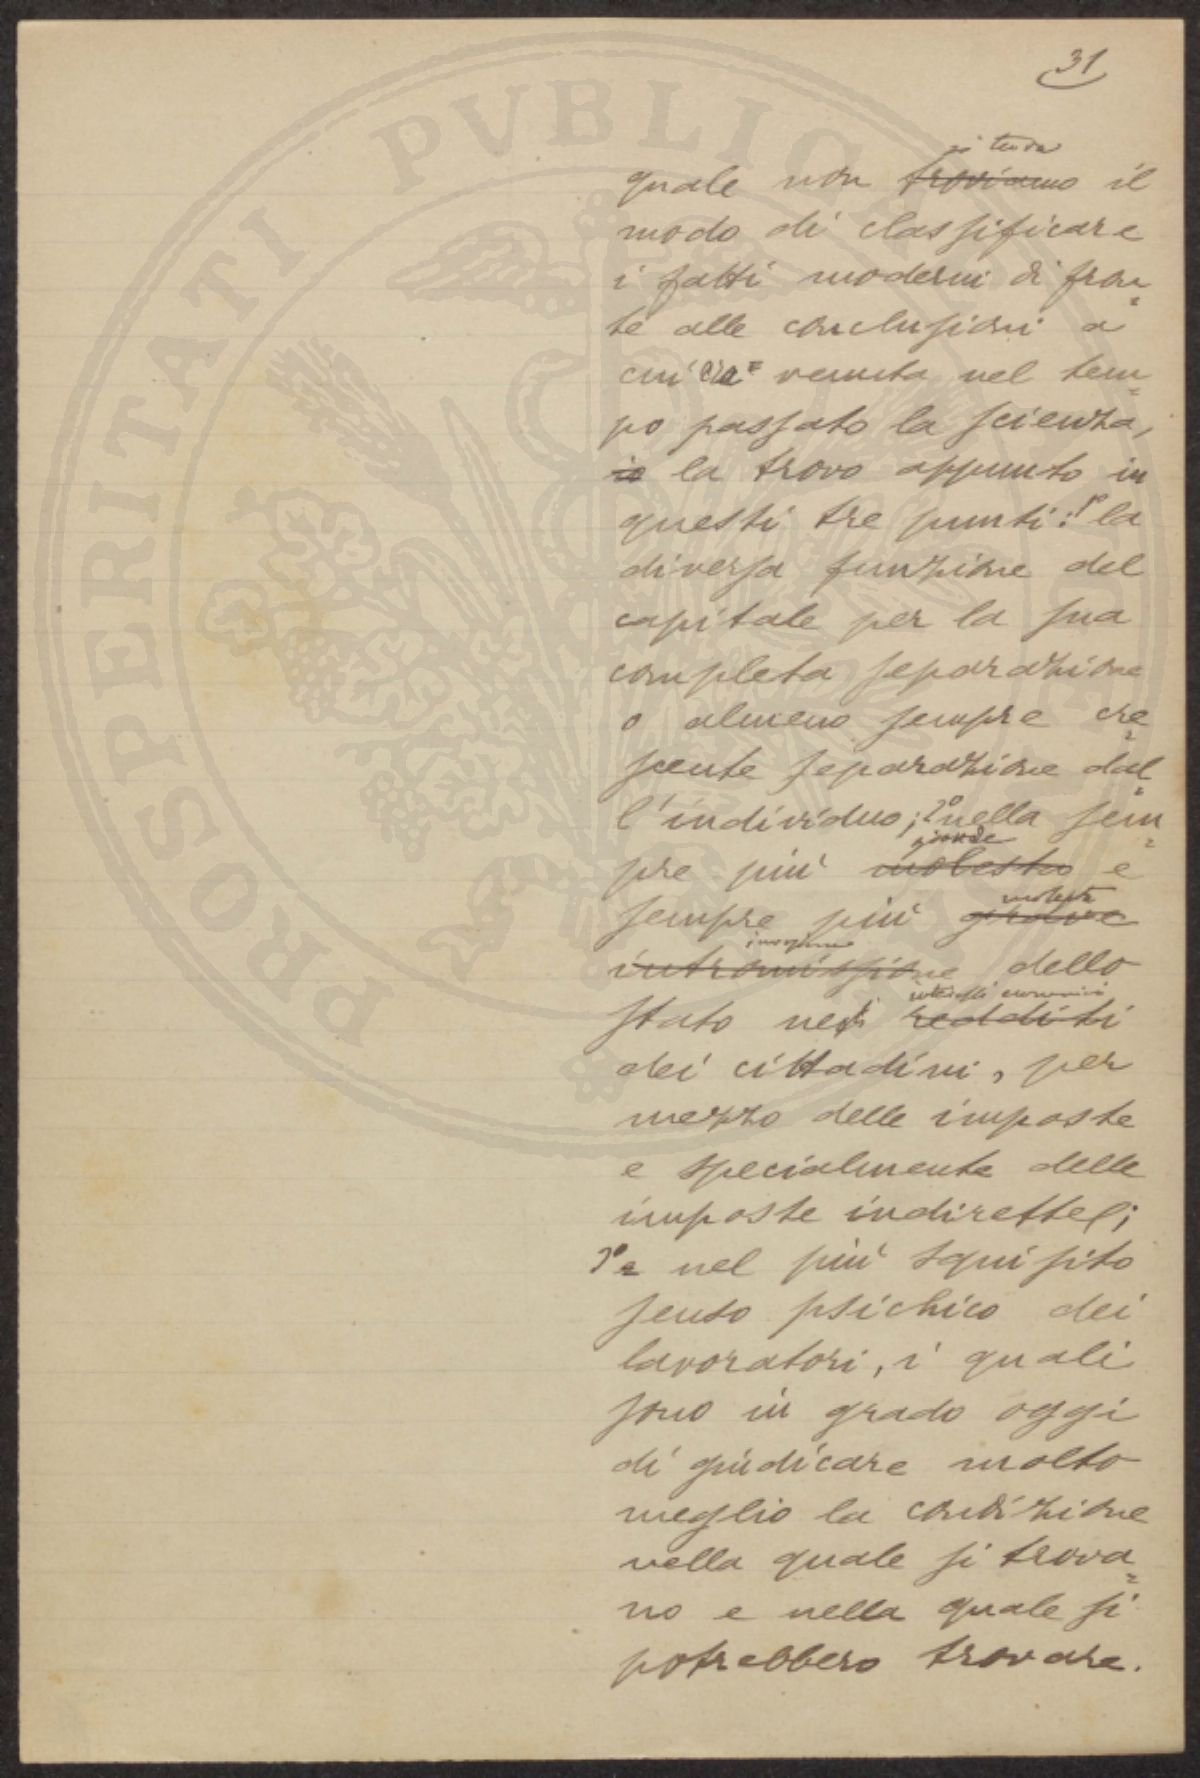 31
si trova
quale non troviamo il
modo di classificare
i fatti moderni di fron=
te alle conclusioni a
cui era venuta nel tem=
po passato la scienza,
io la trovo appunto in
questi tre punti: 1º la
diversa funzione del
capitale per la sua
completa separazione
o almeno sempre cre=
scente separazione dal=
l'individuo; 2º nella sem=
grande
pre più molesta e
molesta
sempre più grave
invasione
intromissione dello
interessi economici
stato negli redditi
dei cittadini, per
mezzo delle imposte
e specialmente delle
imposte indirette;
3º nel più squisito
senso psichico dei
lavoratori, i quali
sono in grado oggi
di giudicare molto
meglio la condizione
nella quale si trova=
no e nella quale si
potrebbero trovare.
PROSPERITATI PVBLICAE